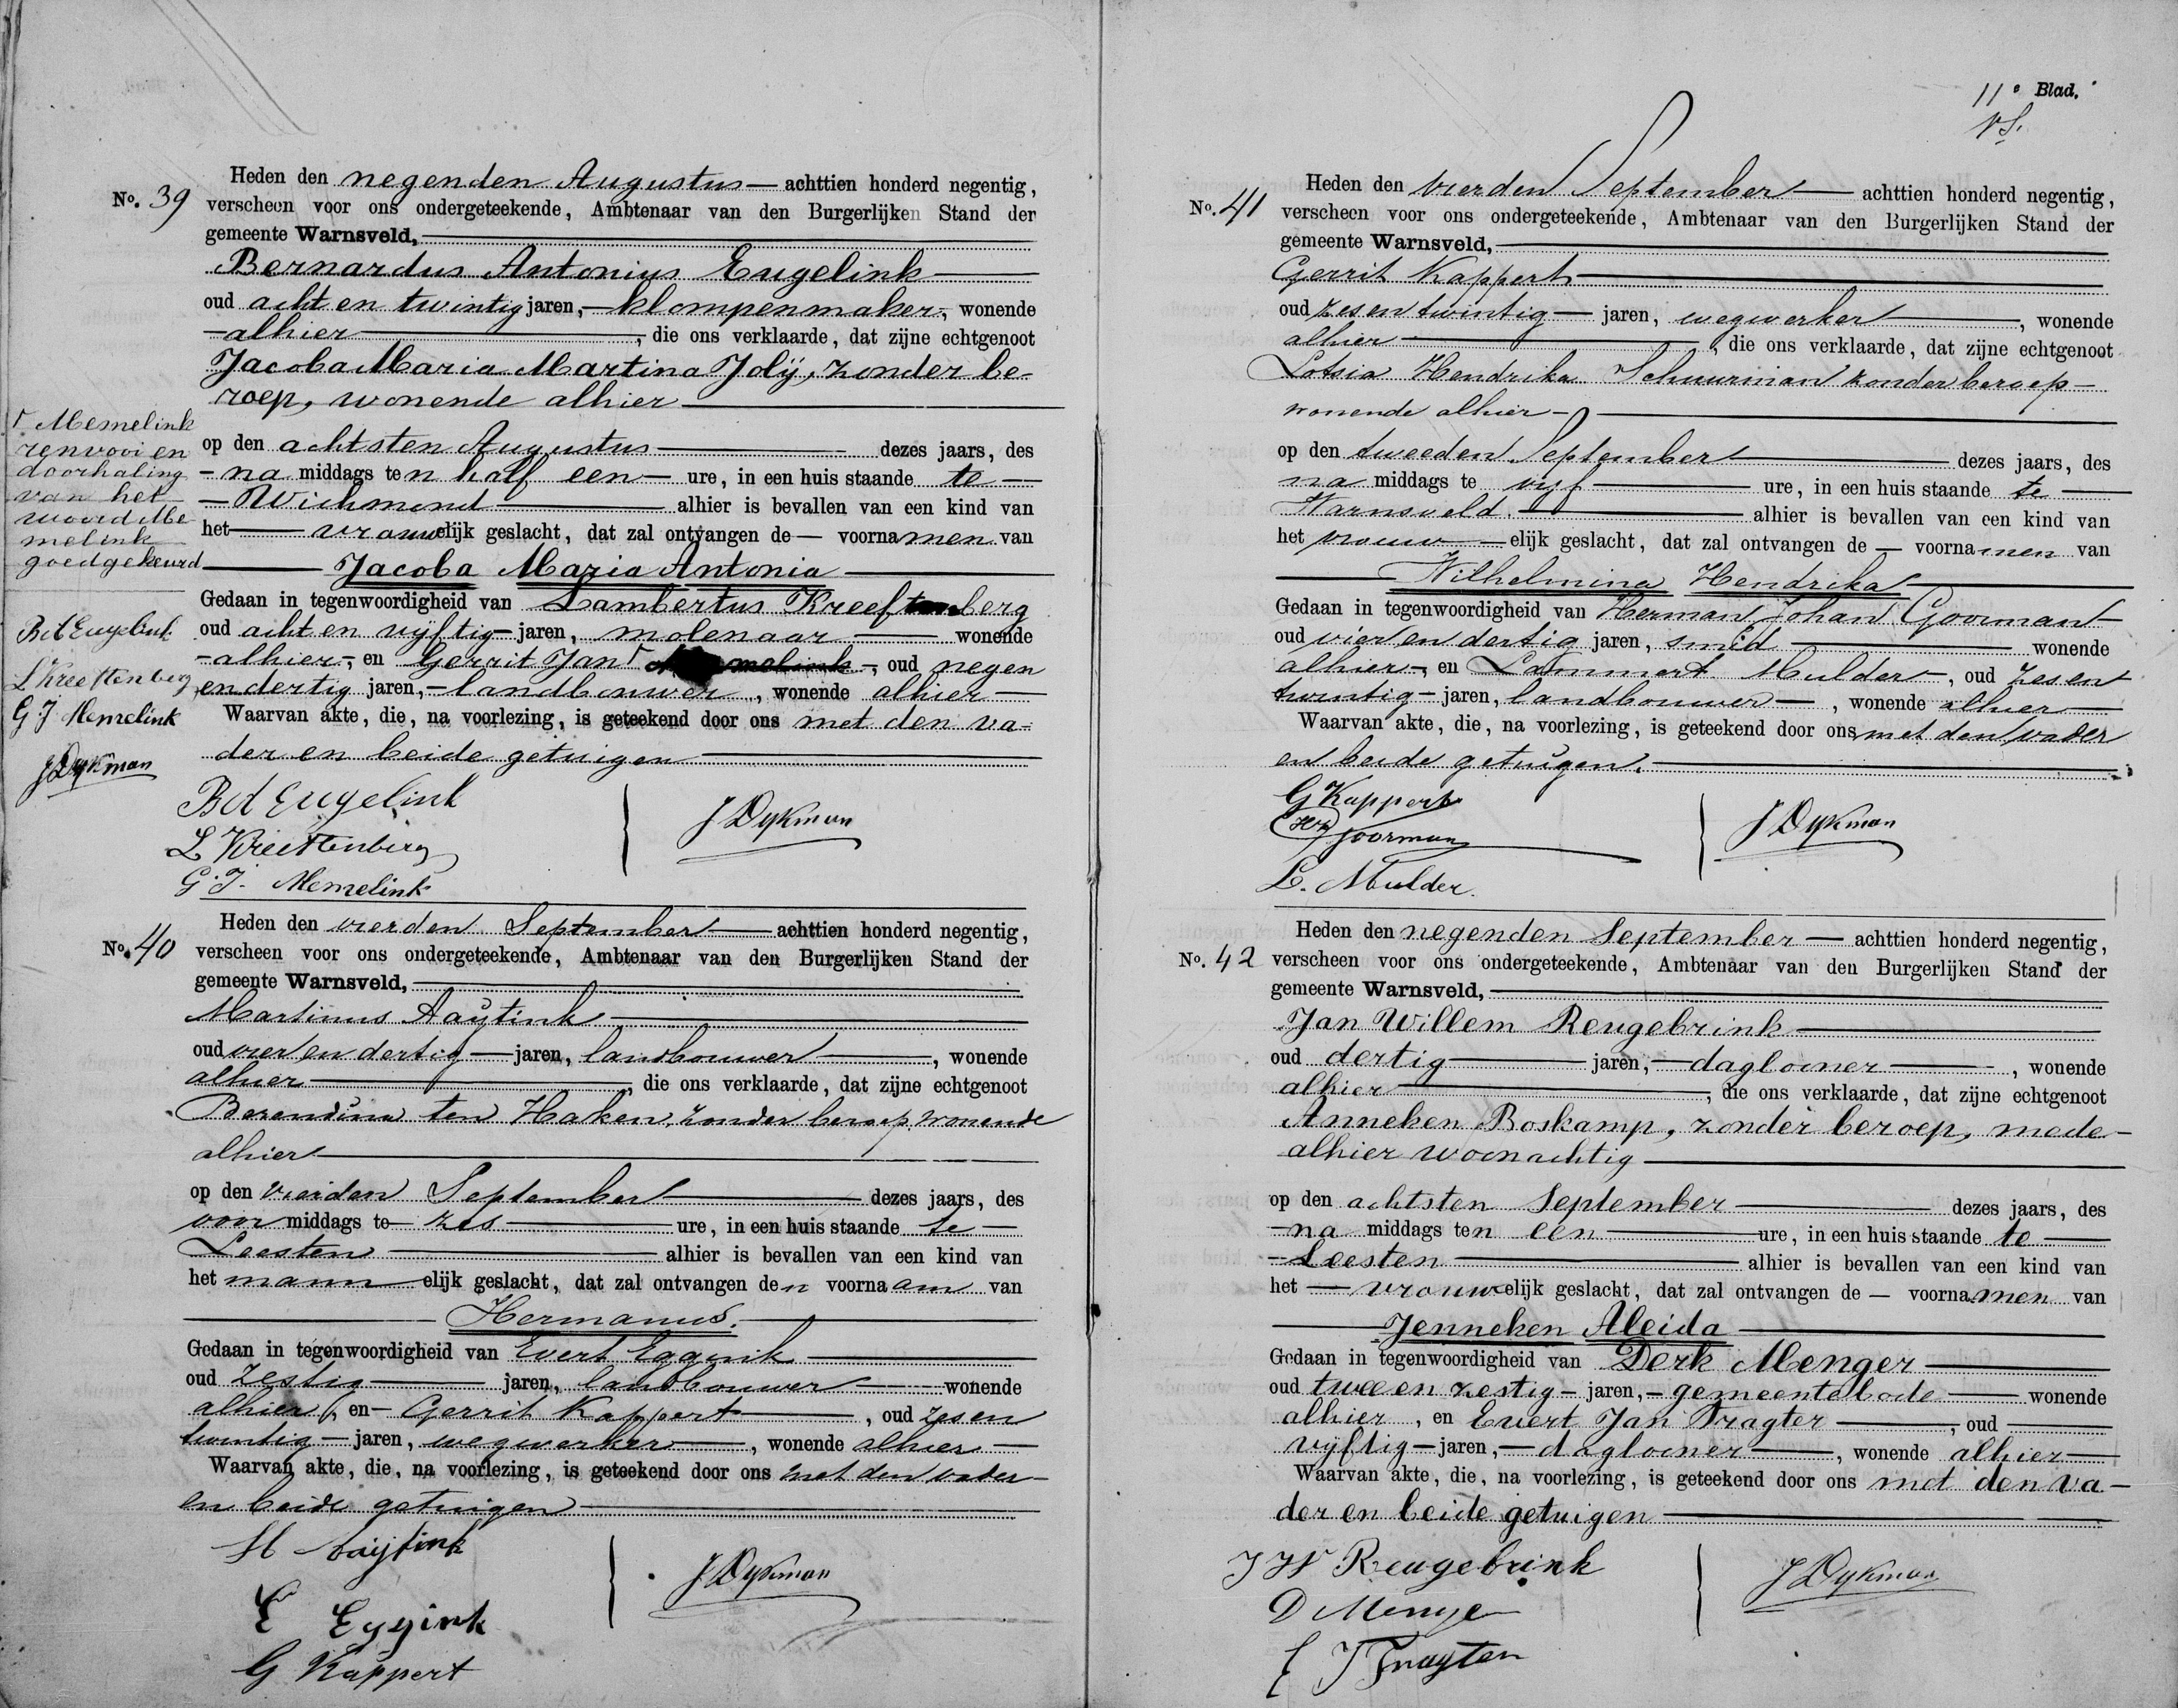 No. 39
Heden den negenden Augustus — achttien honderd negentig,
verscheen voor ons ondergeteekende, Ambtenaar van den Burgerlijken Stand der
gemeente Warnsveld,
Bernardus Antonius Eugelink
oud acht en twintig jaren, klompenmaker, wonende
alhier, die ons verklaarde, dat zijne echtgenoot
Jacoba Maria Martina Jolij, zonder be-
roep, wonende alhier
op den achtsten Augustus dezes jaars, des
na middags ten half een ure, in een huis staande te
Wichmond alhier is bevallen van een kind van
het vrouwelijk geslacht, dat zal ontvangen de voornamen van
Jacoba Maria Antonia
Gedaan in tegenwoordigheid van Lambertus Kreeftenberg
oud acht en vijftig jaren, molenaar wonende
alhier, en Gerrit Jan melink, oud negen
en dertig jaren, landbouwer, wonende alhier
Waarvan akte, die, na voorlezing, is geteekend door ons met den va-
der en beide getuigen
Memelink
renvooi en
doorhaling
van het
woord Me
melink
goedgekeurd
Bd Eugelink
L Kreeftenberg
G J Memelink
J Dykman
Bd Eugelink
L Kreeftenberg
G. J. Memelink
J Dykman
No. 40
Heden den vierden September — achttien honderd negentig,
verscheen voor ons ondergeteekende, Ambtenaar van den Burgerlijken Stand der
gemeente Warnsveld,
Martinus Aaytink
oud vier en dertig jaren, landbouwer, wonende
alhier, die ons verklaarde, dat zijne echtgenoot
Berendina ten Haken, zonder beroep, wonende
alhier
op den vierden September dezes jaars, des
voor middags te zes ure, in een huis staande te
Leesten alhier is bevallen van een kind van
het mannelijk geslacht, dat zal ontvangen den voornaam van
Hermanus.
Gedaan in tegenwoordigheid van Evert Eggink
oud zestig jaren, landbouwer wonende
alhier, en Gerrit Kappert, oud zes en
twintig jaren, wegwerker, wonende alhier
Waarvan akte, die, na voorlezing, is geteekend door ons met den vader
en beide getuigen
M Aaijtink
E Eggink
G Kappert
J Dykman
11e Blad.
No. 41
Heden den vierden September — achttien honderd negentig,
verscheen voor ons ondergeteekende, Ambtenaar van den Burgerlijken Stand der
gemeente Warnsveld,
Gerrit Kappert
oud zes en twintig jaren, wegwerker, wonende
alhier, die ons verklaarde, dat zijne echtgenoot
Hendrika Schuurman zonder beroep
wonende alhier
op den tweeden September dezes jaars, des
na middags te vijf ure, in een huis staande te
Warnsveld alhier is bevallen van een kind van
het vrouwelijk geslacht, dat zal ontvangen de — voornamen van
Wilhelmina Hendrika
Gedaan in tegenwoordigheid van Herman Johan Goorman
oud vier en dertig jaren, smid wonende
alhier, en Lammert Mulder, oud zes en
twintig jaren, landbouwer, wonende alhier
Waarvan akte, die, na voorlezing, is geteekend door ons met den vader
en beide getuigen.
G Kappert
HJ Goorman
L. Mulder.
J Dykman
No. 42
Heden den negenden September — achttien honderd negentig,
verscheen voor ons ondergeteekende, Ambtenaar van den Burgerlijken Stand der
gemeente Warnsveld,
Jan Willem Reugebrink
oud dertig jaren, daglooner, wonende
alhier, die ons verklaarde, dat zijne echtgenoot
Anneken Boskamp, zonder beroep, mede
alhier woonachtig
op den achtsten September dezes jaars, des
na middags ten een ure, in een huis staande te
Leesten alhier is bevallen van een kind van
het vrouwelijk geslacht, dat zal ontvangen de — voornamen van
Jenneken Aleida
Gedaan in tegenwoordigheid van Derk Menger
oud twee en zestig jaren, gemeentebode wonende
alhier, en Evert Jan Tragter, oud
vijftig jaren, daglooner, wonende alhier
Waarvan akte, die, na voorlezing, is geteekend door ons met den va-
der en beide getuigen
J W Reugebrink
D Menger
E J Tragter
J Dykman